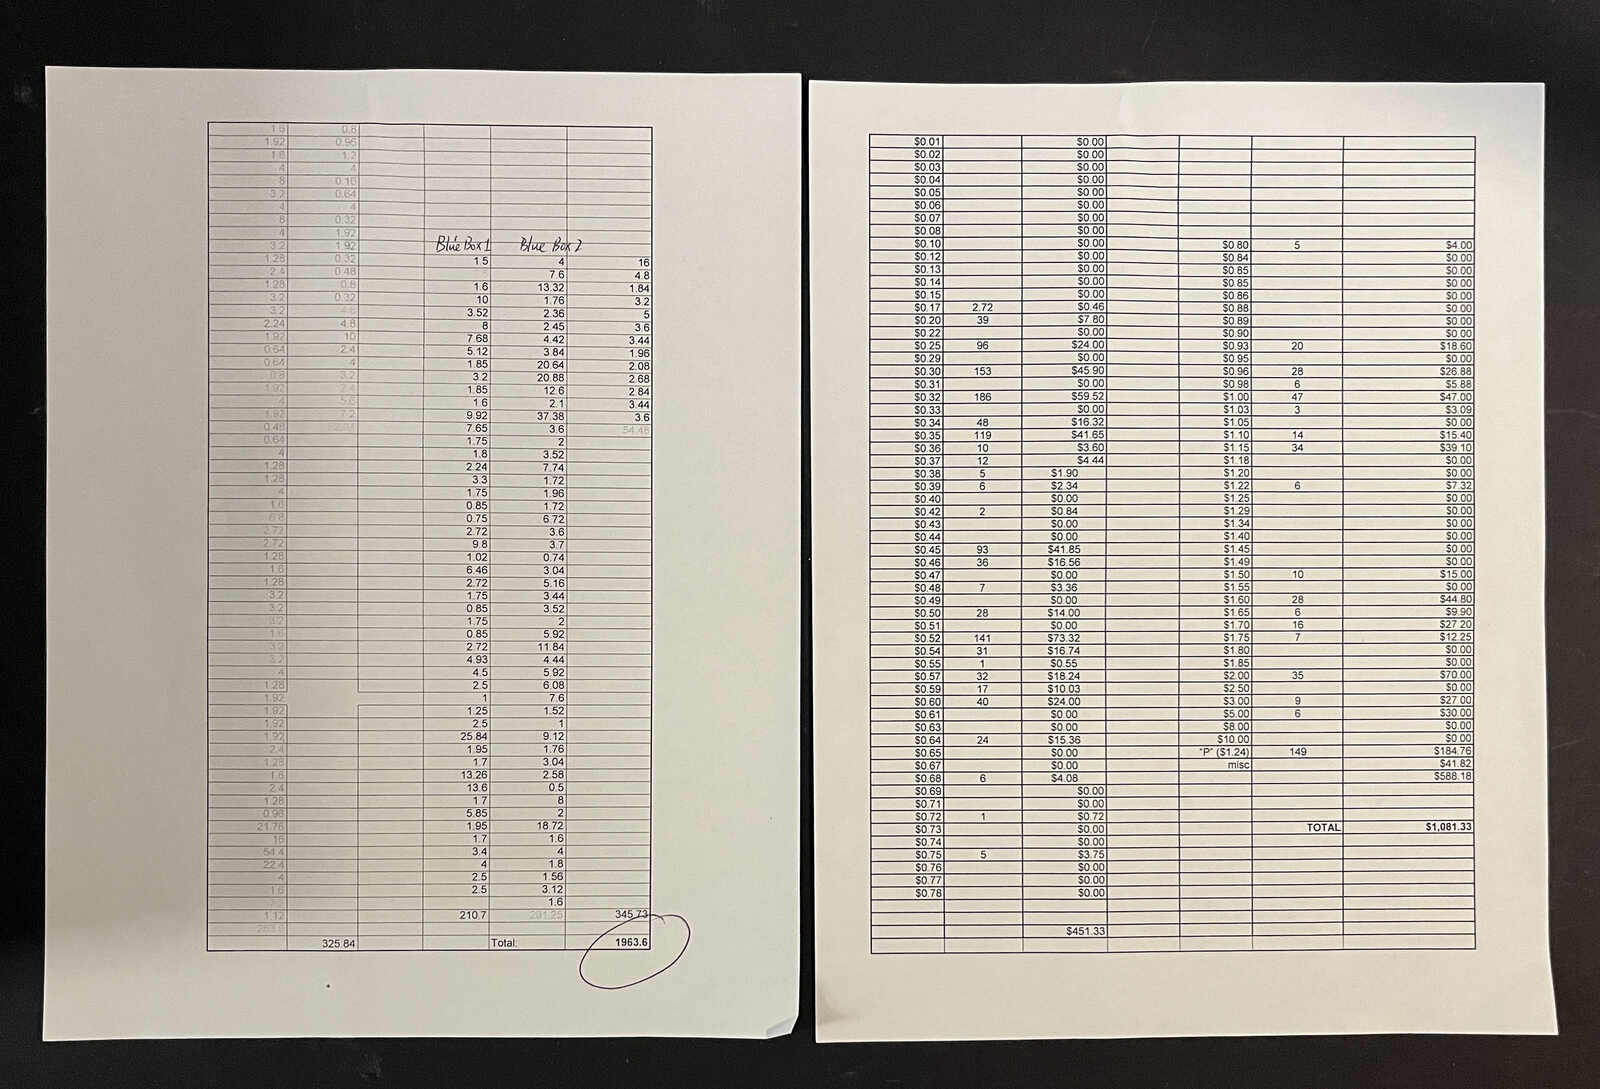 1.6 0.8
1.92 0.96
1.6 1.2
4 4
8 0.16
3.2 0.64
4 4
8 0.32
4 1.92
3.2 1.92 Blue Box 1 Blue Box 2
1.28 0.32 1.5 4 16
2.4 0.48 7.6 4.8
1.28 0.8 1.6 13.32 1.84
3.2 0.32 10 1.76 3.2
3.2 3.52 2.36 5
2.24 4.8 8 2.45 3.6
1.92 10 7.68 4.42 3.44
0.64 2.4 5.12 3.84 1.96
0.64 4 1.85 20.64 2.08
0.8 3.2 3.2 20.88 2.68
1.92 2.4 1.85 12.6 2.84
4 1.6 2.1 3.44
1.92 7.2 9.92 37.38 3.6
0.48 7.65 3.6 54.48
0.64 1.75 2
4 1.8 3.52
1.28 2.24 7.74
1.28 3.3 1.72
4 1.75 1.96
1.6 0.85 1.72
0.75 6.72
2.72 2.72 3.6
2.72 9.8 3.7
1.28 1.02 0.74
1.6 6.46 3.04
1.28 2.72 5.16
3.2 1.75 3.44
3.2 0.85 3.52
3.2 1.75 2
1.6 0.85 5.92
3.2 2.72 11.84
3.2 4.93 4.44
4 4.5 5.92
1.28 2.5 6.08
1.92 1 7.6
1.92 1.25 1.52
1.92 2.5 1
1.92 25.84 9.12
2.4 1.95 1.76
1.28 1.7 3.04
1.6 13.26 2.58
2.4 13.6 0.5
1.28 1.7 8
0.96 5.85 2
21.76 1.95 18.72
16 1.7 1.6
54.4 3.4 4
22.4 4 1.8
4 2.5 1.56
1.6 2.5 3.12
1.6
1.12 210.7 291.25 345.73
325.84 Total: 1963.6
$0.01 $0.00
$0.02 $0.00
$0.03 $0.00
$0.04 $0.00
$0.05 $0.00
$0.06 $0.00
$0.07 $0.00
$0.08 $0.00
$0.10 $0.00 $0.80 5 $4.00
$0.12 $0.00 $0.84 $0.00
$0.13 $0.00 $0.85 $0.00
$0.14 $0.00 $0.85 $0.00
$0.15 $0.00 $0.86 $0.00
$0.17 2.72 $0.46 $0.88 $0.00
$0.20 39 $7.80 $0.89 $0.00
$0.22 $0.00 $0.90 $0.00
$0.25 96 $24.00 $0.93 20 $18.60
$0.29 $0.00 $0.95 $0.00
$0.30 153 $45.90 $0.96 28 $26.88
$0.31 $0.00 $0.98 6 $5.88
$0.32 186 $59.52 $1.00 47 $47.00
$0.33 $0.00 $1.03 3 $3.09
$0.34 48 $16.32 $1.05 $0.00
$0.35 119 $41.65 $1.10 14 $15.40
$0.36 10 $3.60 $1.15 34 $39.10
$0.37 12 $4.44 $1.18 $0.00
$0.38 5 $1.90 $1.20 $0.00
$0.39 6 $2.34 $1.22 6 $7.32
$0.40 $0.00 $1.25 $0.00
$0.42 2 $0.84 $1.29 $0.00
$0.43 $0.00 $1.34 $0.00
$0.44 $0.00 $1.40 $0.00
$0.45 93 $41.85 $1.45 $0.00
$0.46 36 $16.56 $1.49 $0.00
$0.47 $0.00 $1.50 10 $15.00
$0.48 7 $3.36 $1.55 $0.00
$0.49 $0.00 $1.60 28 $44.80
$0.50 28 $14.00 $1.65 6 $9.90
$0.51 $0.00 $1.70 16 $27.20
$0.52 141 $73.32 $1.75 7 $12.25
$0.54 31 $16.74 $1.80 $0.00
$0.55 1 $0.55 $1.85 $0.00
$0.57 32 $18.24 $2.00 35 $70.00
$0.59 17 $10.03 $2.50 $0.00
$0.60 40 $24.00 $3.00 9 $27.00
$0.61 $0.00 $5.00 6 $30.00
$0.63 $0.00 $8.00 $0.00
$0.64 24 $15.36 $10.00 $0.00
$0.65 $0.00 "P" ($1.24) 149 $184.76
$0.67 $0.00 misc $41.82
$0.68 6 $4.08 $588.18
$0.69 $0.00
$0.71 $0.00
$0.72 1 $0.72
$0.73 $0.00 TOTAL $1,081.33
$0.74 $0.00
$0.75 5 $3.75
$0.76 $0.00
$0.77 $0.00
$0.78 $0.00
$451.33